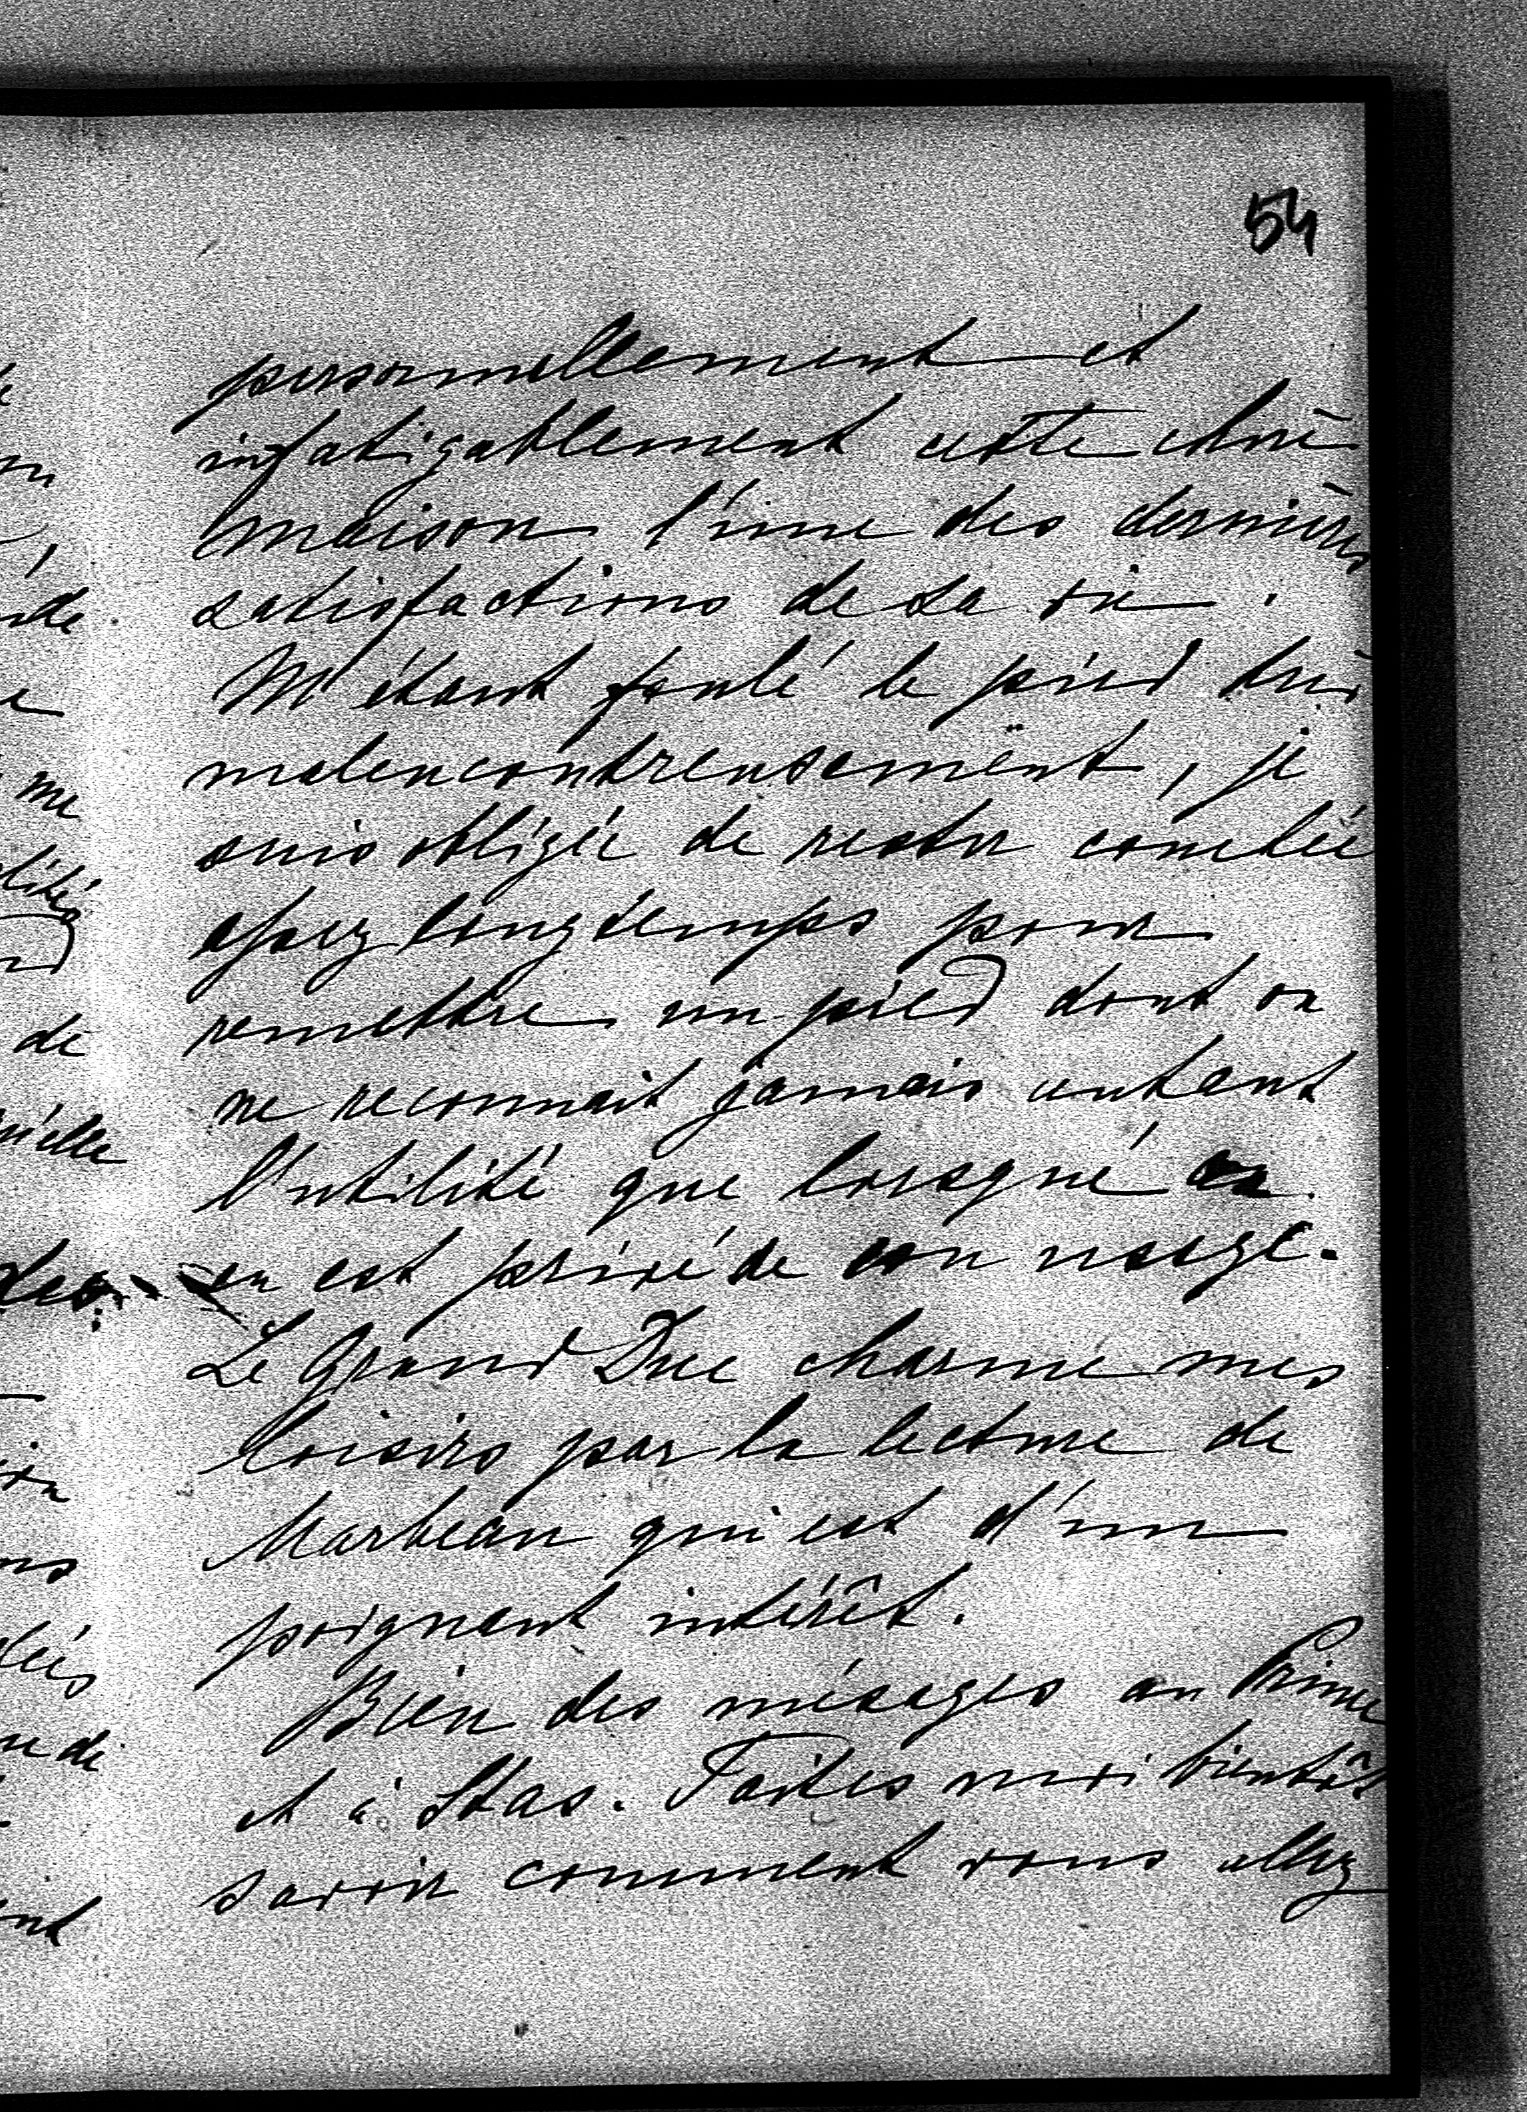 54
personnellement et
infatigablement cette chère
maison l'une des dernières
satisfactions de sa vie.
M'étant foulé le pied très
malencontreusement, je
suis obligée de rester couchée
assez longtemps pour
remettre un pied dont on
ne reconnait jamais autant
l'utilité que lorsqu'
on est privé de son usage.
Le Grand Duc charme mes
loisirs par la lecture de
Marbeau qui est d'un
poignant intérêt.
Bien des méssages au Prince
et à Stas. Faites moi bientôt
savoir comment vous allez